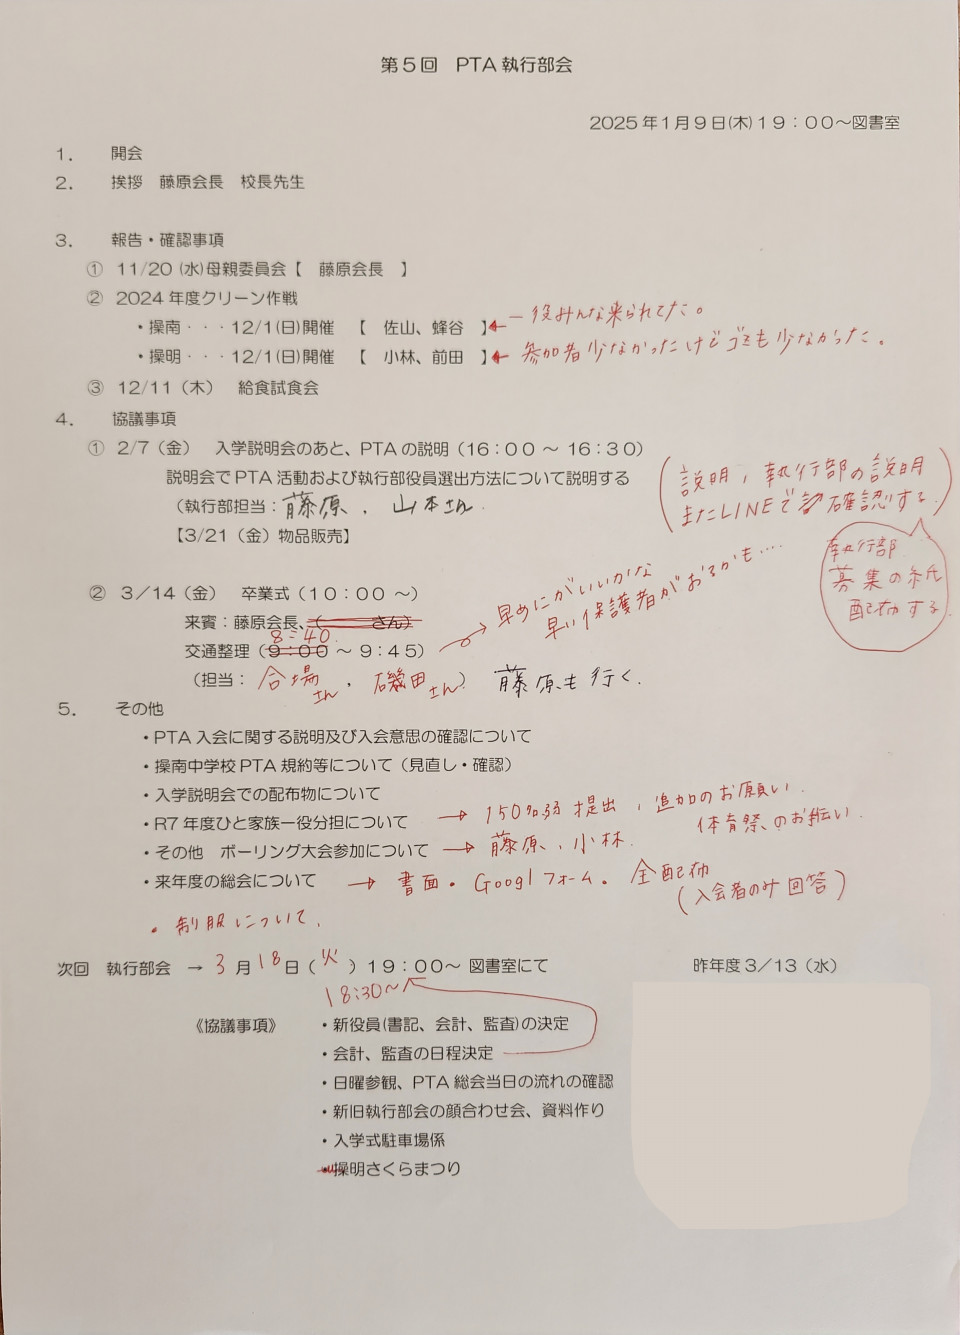 第５回　PTA 執行部会
2025 年１月９日(木)１９：００～図書室
１．　開会
２．　挨拶　藤原会長　校長先生
３．　報告・確認事項
①　11/20 (水)母親委員会【　藤原会長　】
②　2024 年度クリーン作戦
・操南・・・12/1(日)開催　【　佐山、蜂谷　】← 一役みんな来られてた。
・操明・・・12/1(日)開催　【　小林、前田　】← 参加者少なかったけどゴミも少なかった。
③　12/11（木）　給食試食会
４．　協議事項
①　2/7（金）　入学説明会のあと、PTA の説明（16：００～16：３０）
説明会で PTA 活動および執行部役員選出方法について説明する
（執行部担当：藤原、山本さん
(説明、執行部の説明
またLINEで確認する。)
【3/21（金）物品販売】
執行部
募集の紙
配布する。
②　３／14（金）　卒業式（１０：００～）
来賓：藤原会長、（　　　さん）
8：40
交通整理（９：００～９：４５）
→ 早めにがいいかな
早い保護者がおるかも…
（担当：合場さん、磯田さん）　藤原も行く。
５．　その他
・PTA 入会に関する説明及び入会意思の確認について
・操南中学校 PTA 規約等について（見直し・確認）
・入学説明会での配布物について
・R７年度ひと家族一役分担について　→ 150名弱 提出、追加のお願い、
体育祭のお手伝い。
・その他　ボーリング大会参加について　→ 藤原、小林
・来年度の総会について　→ 書面。Googlフォーム。全配布
(入会者のみ回答)
・制服について。
次回　執行部会　→　3月18日（火）１９：００～ 図書室にて　　昨年度３／13（水）
18：30～
《協議事項》　・新役員(書記、会計、監査)の決定
・会計、監査の日程決定
・日曜参観、PTA 総会当日の流れの確認
・新旧執行部会の顔合わせ会、資料作り
・入学式駐車場係
・操明さくらまつり